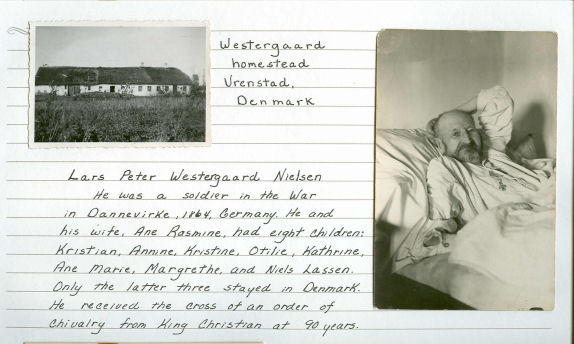 Westergaard
homestead
Vrenstad,
Denmark
Lars Peter Westergaard Nielsen
He was a soldier in the War
in Dannevirke, 1864, Germany. He and
his wife, Ane Rasmine, had eight children:
Kristian, Annine, Kristine, Otilie, Kathrine,
Ane Marie, Margrethe, and Niels Lassen.
Only the latter three stayed in Denmark.
He received the cross of an order of
Chivalry from King Christian at 90 years.